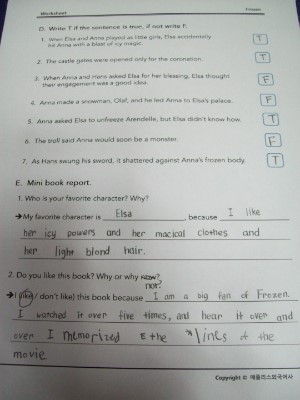 Worksheet Frozen
D. Write T if the sentence is true, if not write F.
1. When Elsa and Anna played as little girls, Elsa accidentally
hit Anna with a blast of icy magic. T
2. The castle gates were opened only for the coronation. T
3. When Anna and Hans asked Elsa for her blessing, Elsa thought
their engagement was a good idea. F
4. Anna made a snowman, Olaf, and he led Anna to Elsa's palace. F
5. Anna asked Elsa to unfreeze Arendelle, but Elsa didn't know how. T
6. The troll said Anna would soon be a monster. F
7. As Hans swung his sword, it shattered against Anna's frozen body. T
E. Mini book report.
1. Who is your favorite character? Why?
➔My favorite character is Elsa because I like
her icy powers and her macical clothes and
her light blond hair.
2. Do you like this book? Why or why now?
not?
➔I (like / don't like) this book because I am a big fan of Frozen.
I watched it over five times, and hear it over and
over I memorized the lines of the
movie
Copyright © 애플리스외국어사